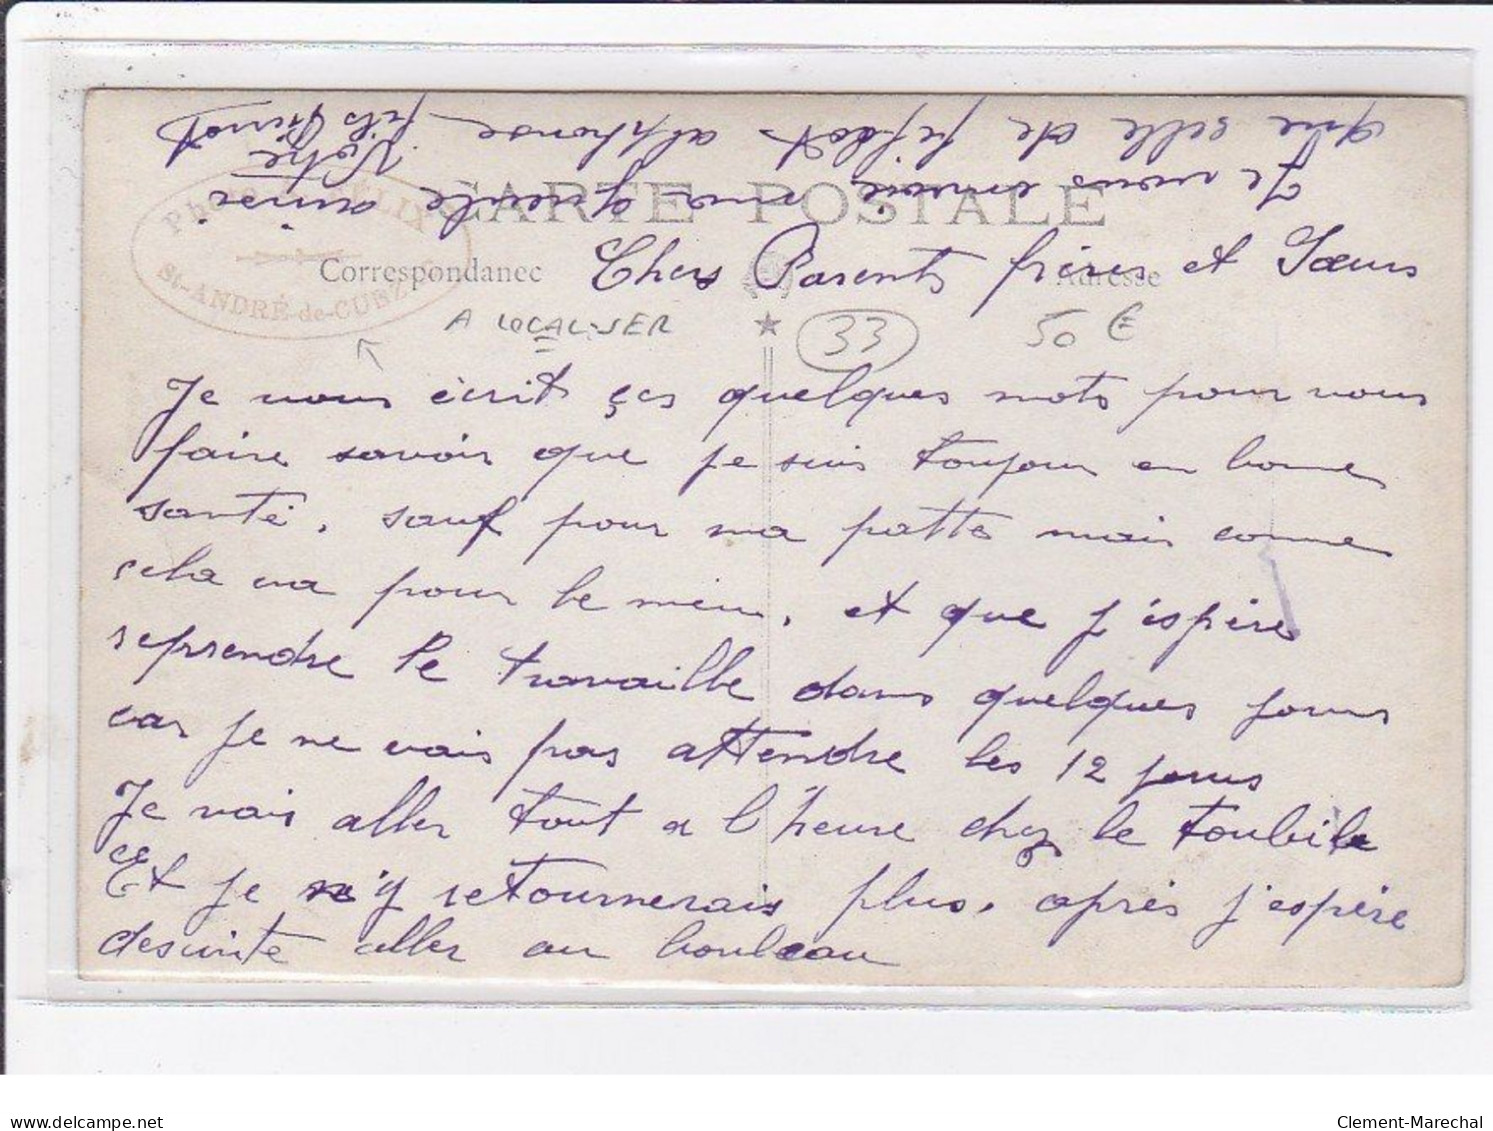 CARTE POSTALE
Correspondanec
Adresse
St-ANDRÉ-de-CUBZAC
A LOCALISER
33
50 €
Chers Parents frères et Sœurs
Je vous écrit ces quelques mots pour vous
faire savoir que je suis toujour en bonne
santé, sauf pour ma patte mais comme
cela va pour le mieu, et que j'espère
reprendre le travaille dans quelques jours
car je ne vais pas attendre les 12 jours
Je vais aller tout a l'heure chez le toubib
Et je n'y retournerais plus, après j'espère
desuite aller au bouleau
Je vous envoie ma gueule ainsi
que celle de alphonse
Votre fils
Clement-Marechal
www.delcampe.net